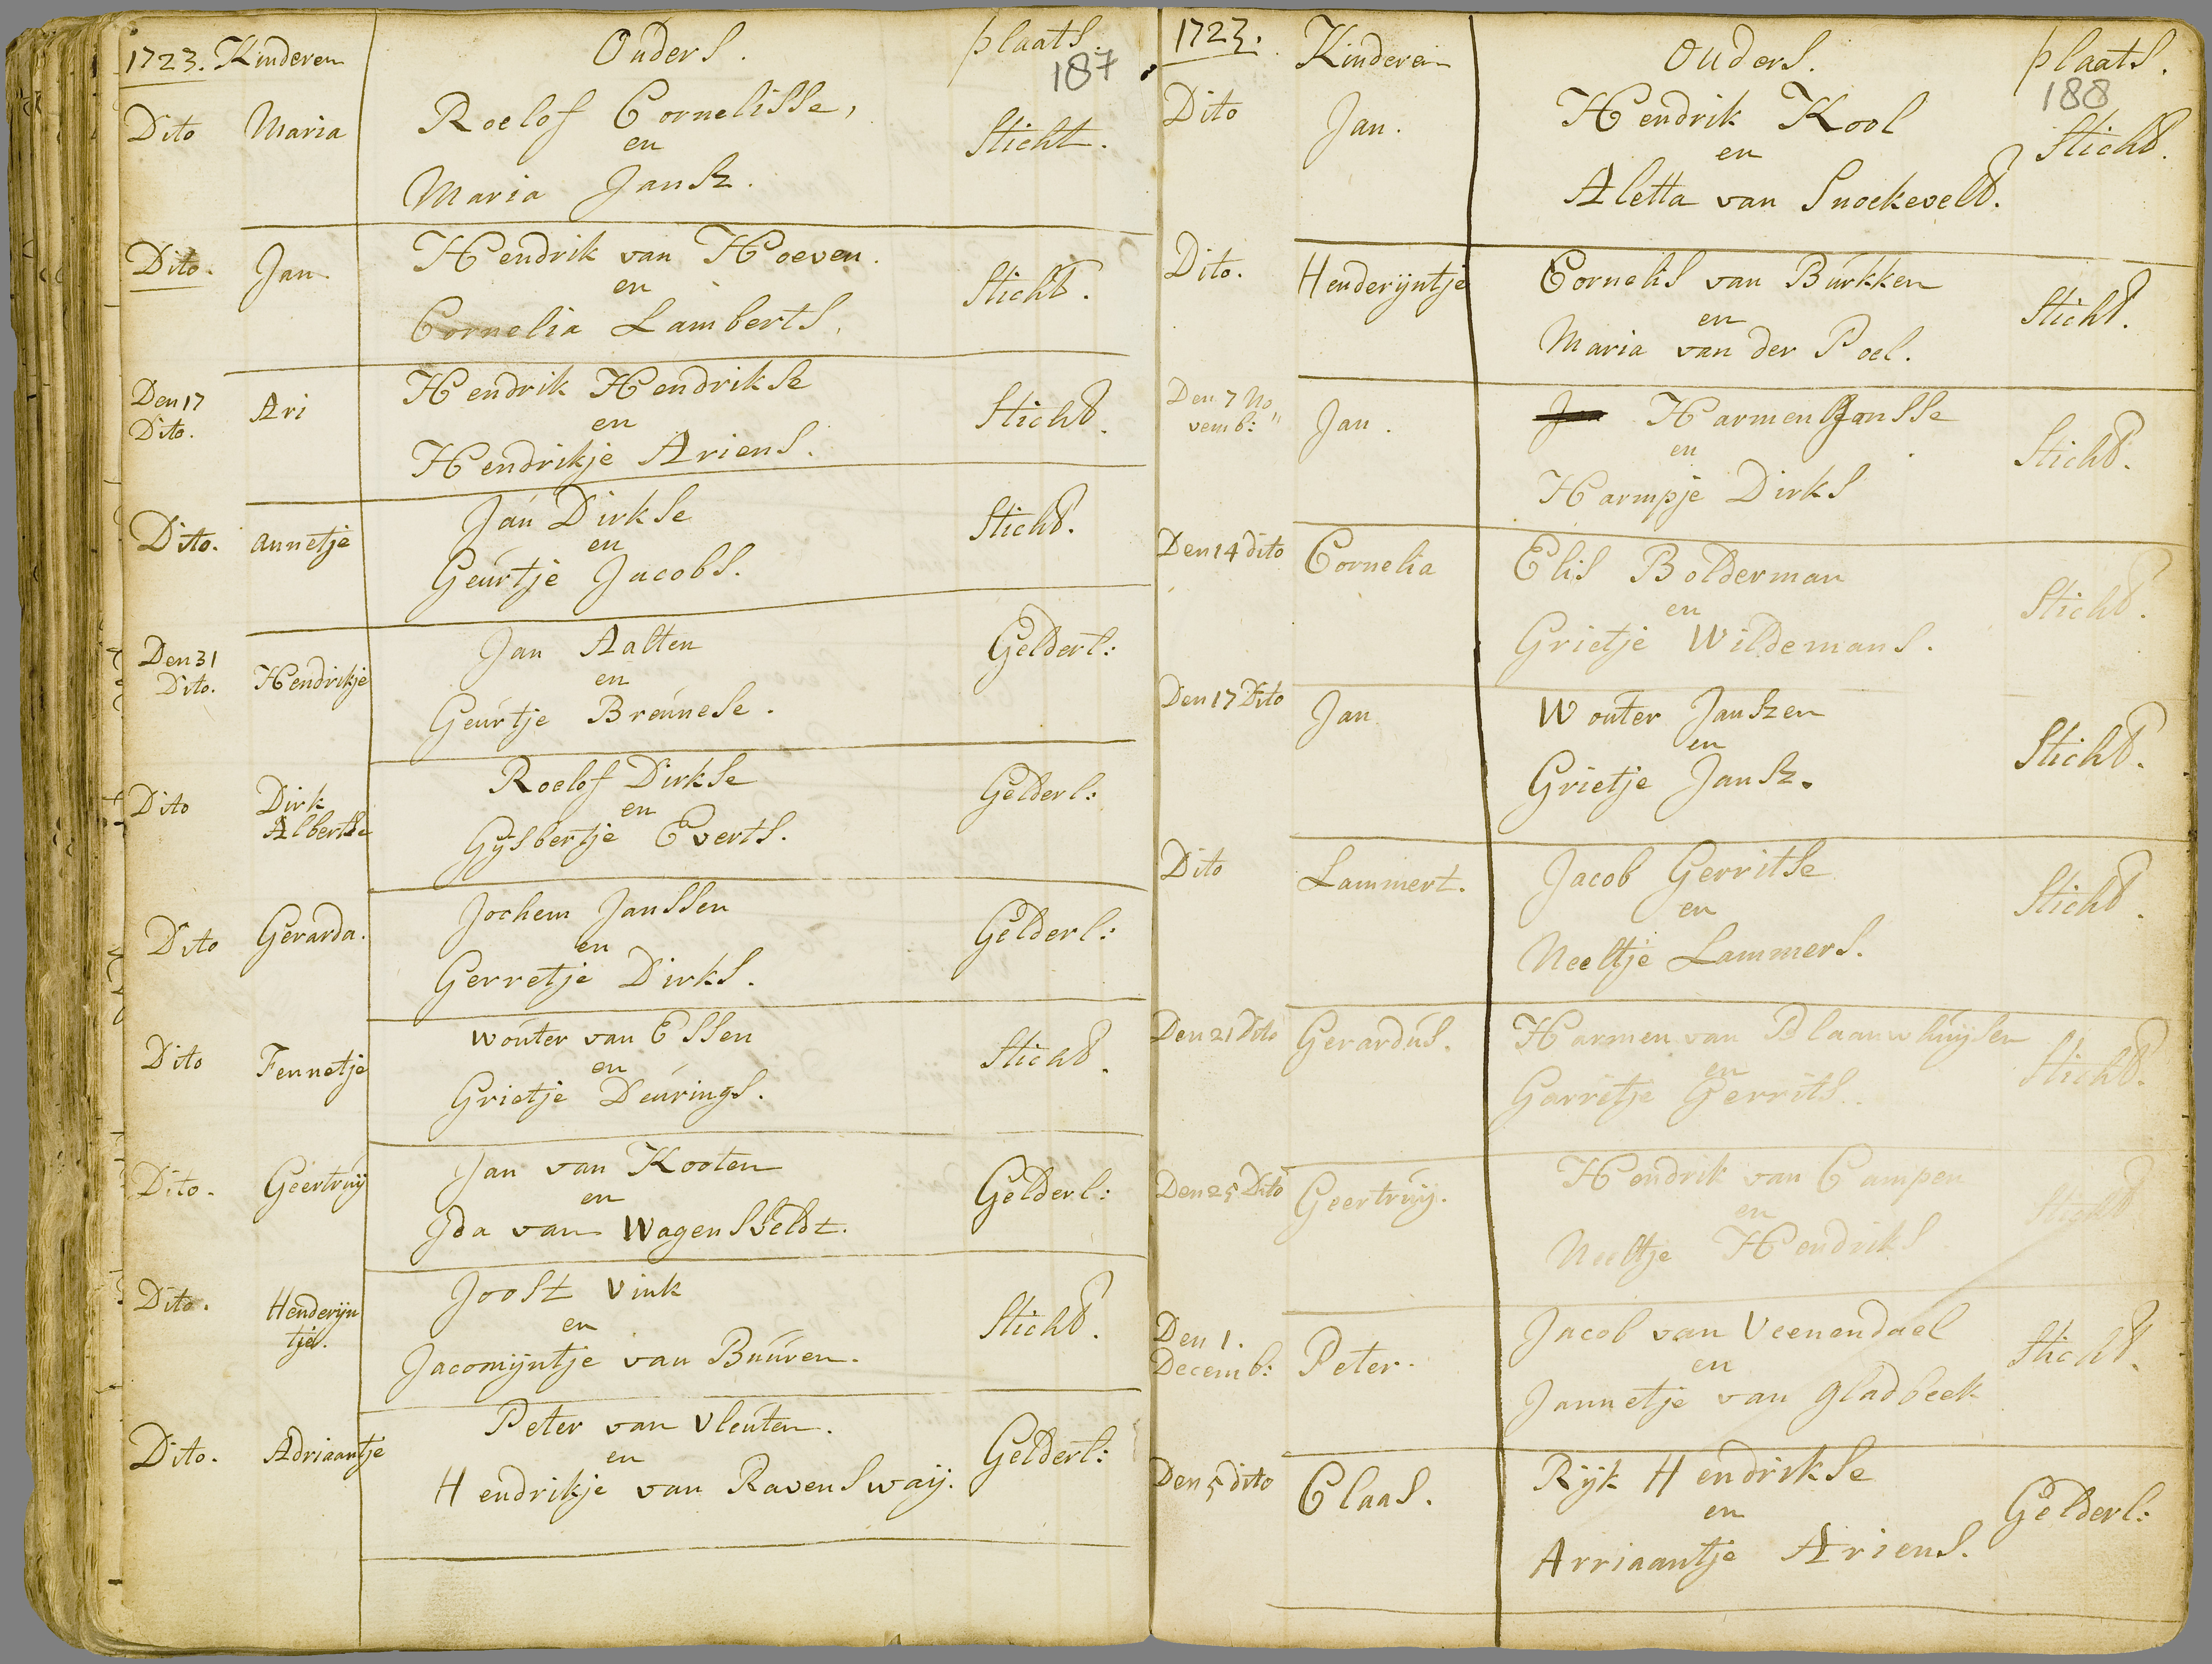 1723. Kinderen Ouders. plaats.
187
Dito Maria Roelof Cornelisse, Sticht.
en
Maria Jansz.
Dito. Jan Hendrik van Hoeven. Sticht.
en
Cornelia Lamberts.
Den 17
Dito. Ari Hendrik Hendrikse Sticht.
en
Hendrikje Ariens.
Dito. annetje Jan Dirkse Sticht.
en
Geurtje Jacobs.
Den 31
Dito. Hendrikje Jan Aalten Gelderl:
en
Geurtje Breunese.
Dito Dirk
Albertse Roelof Dirkse Gelderl:
en
Gysbertje Everts.
Dito Gerarda. Jochem Janssen Gelderl:
en
Gerretje Dirks.
Dito Fennetje Wouter van Essen Sticht.
en
Grietje Deurings.
Dito. Geertruy Jan van Kooten Gelderl:
en
Ida van Wagensveldt.
Dito. Henderijn
tje. Joost Vink Sticht.
en
Jacomijntje van Buuren.
Dito. Adriaantje Peter van Vleuten. Gelderl:
en
Hendrikje van Ravenswaij.
1723. Kinderen Ouders. plaats.
188
Dito Jan. Hendrik Kool Sticht.
en
Aletta van Snoekevelt.
Dito. Henderijntje Cornelis van Burkken Sticht.
en
Maria van der Poel.
Den 7 No
vemb: " Jan. Jan Harmen Jansse Sticht.
en
Harmpje Dirks
Den 14 dito Cornelia Elis Bolderman Sticht.
en
Grietje Wildemans.
Den 17 Dito Jan Wouter Janszen Sticht.
en
Grietje Jansz.
Dito Lammert. Jacob Gerritse Sticht.
en
Neeltje Lammers.
Den 21 Dito Gerardus. Harmen van Blaauwhuijsen Sticht.
en
Garritje Gerrits.
Den 25 Dito Geertruij. Hendrik van Campen Sticht
en
Neeltje Hendriks
Den 1.
Decemb: Peter. Jacob van Veenendael Sticht.
en
Jannetje van Gladbeek
Den 5 dito Claas. Rijk Hendrikse Gelderl:
en
Arriaantje Ariens.